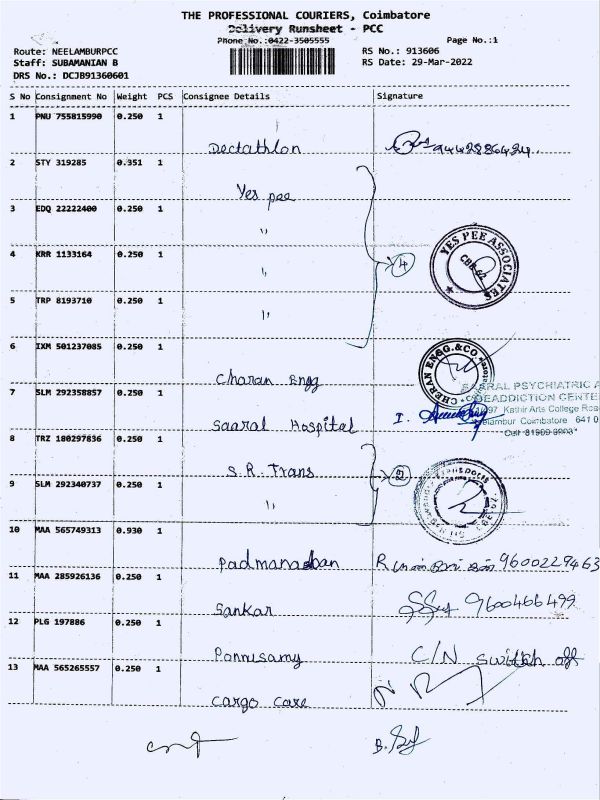 THE PROFESSIONAL COURIERS, Coimbatore
Delivery Runsheet - PCC
Phone No.:0422-3505555
Page No.:1
Route: NEELAMBURPCC
RS No.: 913606
Staff: SUBAMANIAN B
RS Date: 29-Mar-2022
DRS No.: DCJB91360601
S No Consignment No Weight PCS Consignee Details Signature
1 PNU 755815990 0.250 1
Dectathlon 9442886424.
2 STY 319285 0.351 1
Yes pee
3 EDQ 22222400 0.250 1
"
YES PEE ASSOCIATES
CBE-62
4 KRR 1133164 0.250 1
" 4
5 TRP 8193710 0.250 1
"
6 IXM 501237085 0.250 1
Charan Engg
CHERAN ENGG.&CO.
7 SLM 292358857 0.250 1
SAARAL PSYCHIATRIC A
DEADDICTION CENTE
Kathir Arts College Roa
Coimbatore 641 0
Saaral Hospital
8 TRZ 180297836 0.250 1
S.R. Trans
2
9 SLM 292340737 0.250 1
"
Transports
10 MAA 565749313 0.930 1
Padmanaban 9600229463
11 MAA 285926136 0.250 1
Sankar 9600466499
12 PLG 197886 0.250 1
Ponnusamy C/N switch off
13 MAA 565265557 0.250 1
Cargo Care